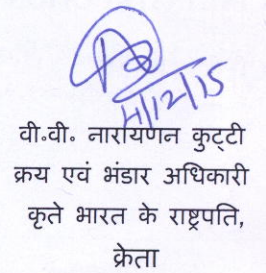 11/2/15
वी.वी. नारायणन कुट्टी
क्रय एवं भंडार अधिकारी
कृते भारत के राष्ट्रपति,
क्रेता